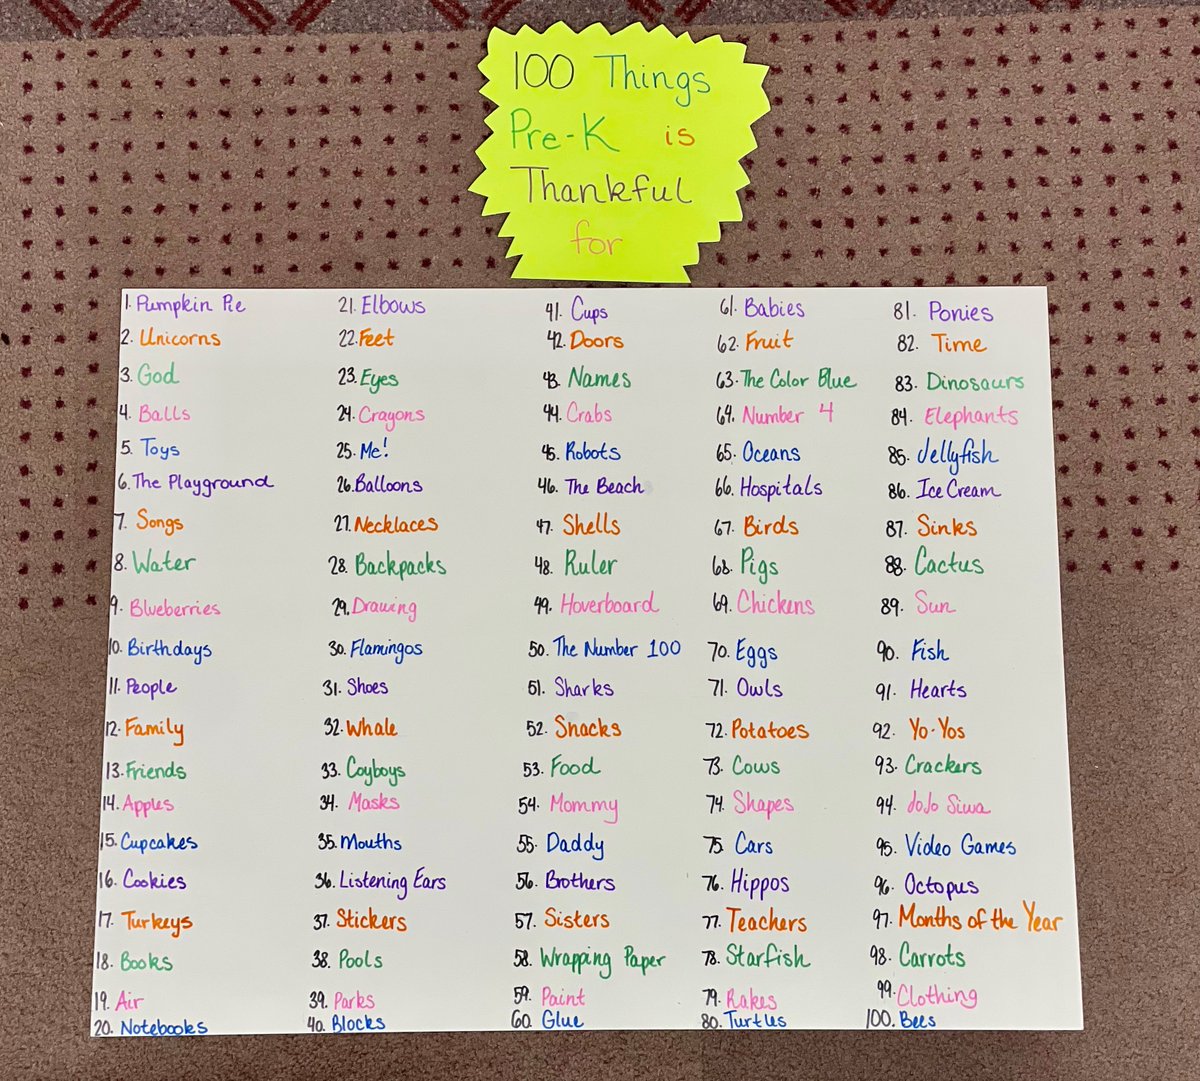 100 Things
Pre-K is
Thankful
for
1. Pumpkin Pie
2. Unicorns
3. God
4. Balls
5. Toys
6. The Playground
7. Songs
8. Water
9. Blueberries
10. Birthdays
11. People
12. Family
13. Friends
14. Apples
15. Cupcakes
16. Cookies
17. Turkeys
18. Books
19. Air
20. Notebooks
21. Elbows
22. Feet
23. Eyes
24. Crayons
25. Me!
26. Balloons
27. Necklaces
28. Backpacks
29. Drawing
30. Flamingos
31. Shoes
32. Whale
33. Coyboys
34. Masks
35. Mouths
36. Listening Ears
37. Stickers
38. Pools
39. Parks
40. Blocks
41. Cups
42. Doors
43. Names
44. Crabs
45. Robots
46. The Beach
47. Shells
48. Ruler
49. Hoverboard
50. The Number 100
51. Sharks
52. Snacks
53. Food
54. Mommy
55. Daddy
56. Brothers
57. Sisters
58. Wrapping Paper
59. Paint
60. Glue
61. Babies
62. Fruit
63. The Color Blue
64. Number 4
65. Oceans
66. Hospitals
67. Birds
68. Pigs
69. Chickens
70. Eggs
71. Owls
72. Potatoes
73. Cows
74. Shapes
75. Cars
76. Hippos
77. Teachers
78. Starfish
79. Rakes
80. Turtles
81. Ponies
82. Time
83. Dinosaurs
84. Elephants
85. Jellyfish
86. Ice Cream
87. Sinks
88. Cactus
89. Sun
90. Fish
91. Hearts
92. Yo-Yos
93. Crackers
94. JoJo Siwa
95. Video Games
96. Octopus
97. Months of the Year
98. Carrots
99. Clothing
100. Bees